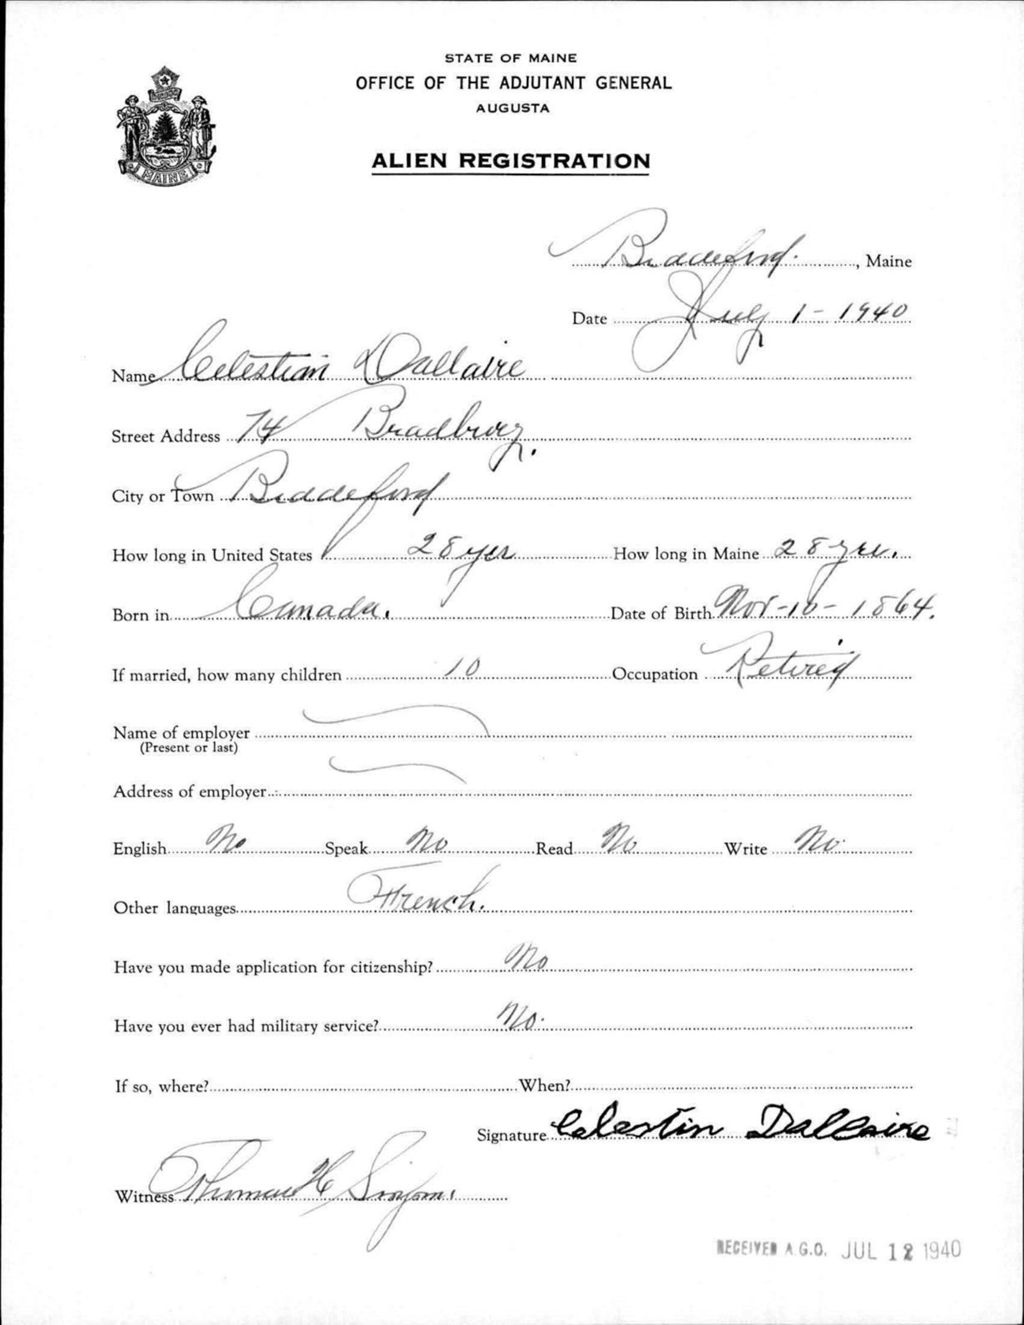 STATE OF MAINE
OFFICE OF THE ADJUTANT GENERAL
AUGUSTA
ALIEN REGISTRATION
MAINE
Biddeford, Maine
Date July 1 - 1940
Name Celestian Dallaire
Street Address 74 Bradbury.
City or Town Biddeford
How long in United States 28 yrs How long in Maine 28 yrs.
Born in Canada. Date of Birth Nov - 10 - 1864.
If married, how many children 10 Occupation Retired
Name of employer
(Present or last)
Address of employer
English No Speak No Read No Write No.
Other languages French.
Have you made application for citizenship? No
Have you ever had military service? No.
If so, where? When?
Signature Celestin Dallaire
Witness Thomas H
RECEIVED A.G.O. JUL 12 1940